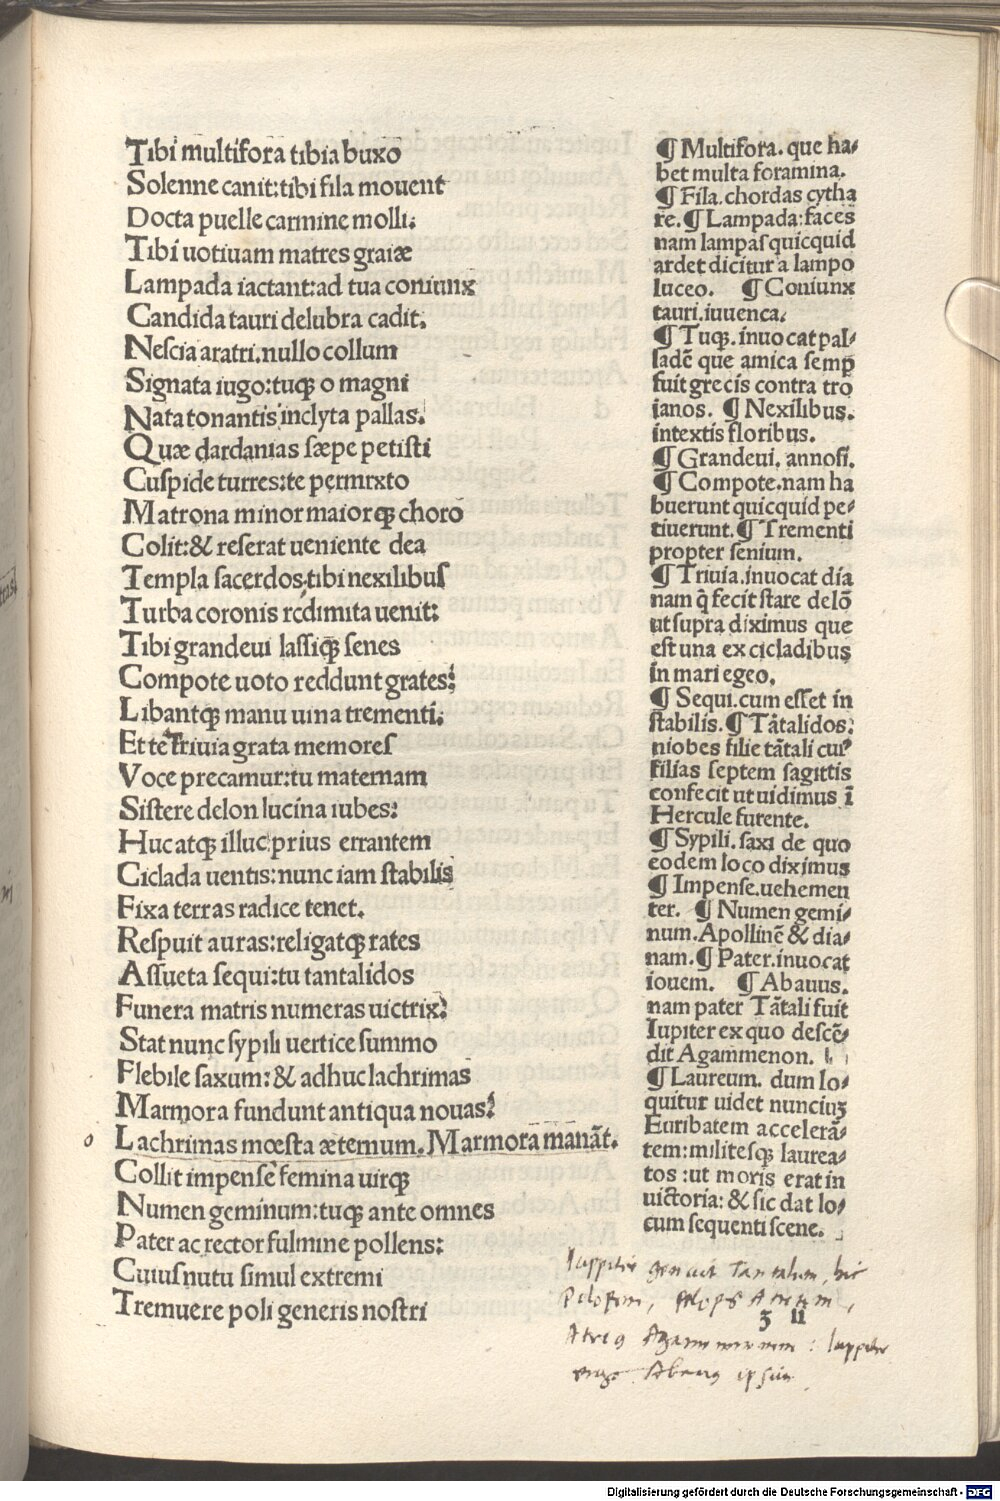 Tibi multifora tibia buxo
Solenne canit: tibi fila mouent
Docta puelle carmine molli:
Tibi uotiuam matres graiæ
Lampada iactant: ad tua coniunx
Candida tauri delubra cadit.
Nescia aratri. nullo collum
Signata iugo: tuqꝫ o magni
Nata tonantis inclyta pallas.
Quæ dardanias sæpe petisti
Cuspide turres: te permixto
Matrona minor maiorqꝫ choro
Colit: & reserat ueniente dea
Templa sacerdos. tibi nexilibus
Turba coronis redimita uenit:
Tibi grandeui lassiqꝫ senes
Compote uoto reddunt grates:
Libantqꝫ manu uina trementi:
Et te triuia grata memores
Voce precamur: tu maternam
Sistere delon lucina iubes:
Huc atqꝫ illuc prius errantem
Ciclada uentis: nunc iam stabilis
Fixa terras radice tenet.
Respuit auras: religatqꝫ rates
Assueta sequi: tu tantalidos
Funera matris numeras uictrix:
Stat nunc sypili uertice summo
Flebile saxum: & adhuc lachrimas
Marmora fundunt antiqua nouas:
o Lachrimas mœsta æternum. Marmora manāt.
Collit impense femina uirqꝫ
Numen geminum: tuqꝫ ante omnes
Pater ac rector fulmine pollens:
Cuius nutu simul extremi
Tremuere poli generis nostri
¶ Multifora. que ha/
bet multa foramina.
¶ Fila. chordas cytha
re. ¶ Lampada: faces
nam lampas quicquid
ardet dicitur a lampo
luceo. ¶ Coniunx
tauri. iuuenca.
¶ Tuqꝫ. inuocat pal/
ladē que amica semꝑ
fuit grecis contra tro
ianos. ¶ Nexilibus.
intextis floribus.
¶ Grandeui. annosi.
¶ Compote. nam ha
buerunt quicquid pe/
tiuerunt. ¶ Trementi
propter senium.
¶ Triuia. inuocat dia
nam q̄ fecit stare delō
ut supra diximus que
est una ex cicladibus
in mari egeo.
¶ Sequi. cum esset in
stabilis. ¶ Tātalidos:
niobes filie tātali cui⁹
filias septem sagittis
confecit ut uidimus ī
Hercule furente.
¶ Sypili. saxi de quo
eodem loco diximus
¶ Impense. uehemen
ter. ¶ Numen gemi/
num. Apollinē & dia/
nam. ¶ Pater. inuocat
iouem. ¶ Abauus.
nam pater Tātali fuit
Iupiter ex quo descē/
dit Agammenon.
¶ Laureum. dum lo/
quitur uidet nunciuꝫ
Euribatem accelerā/
tem: militesqꝫ laurea/
tos: ut moris erat in
uictoria: & sic dat lo/
cum sequenti scene.
Iuppiter genuit Tantalum, hic
Pelopem, Pelops Atreum,
ʒ ii
Atreus Agamemnonem: Iuppiter
ergo Abauus ipsius
Digitalisierung gefördert durch die Deutsche Forschungsgemeinschaft - DFG